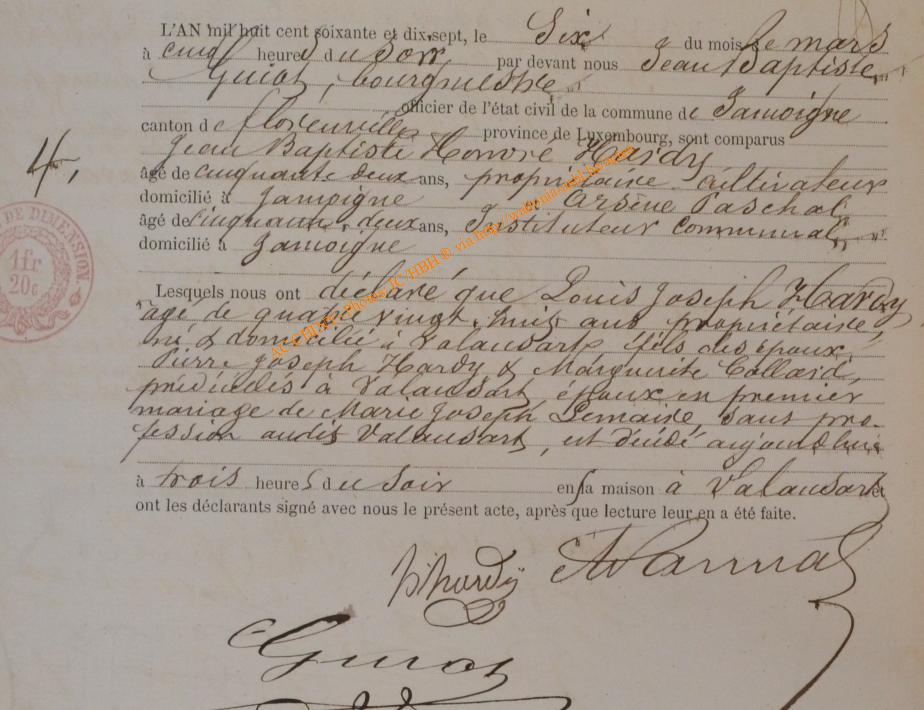 L'AN mil huit cent soixante et dix sept, le Six du mois de mars
à cinq heures du Soir, par devant nous Jean Baptiste
Guiot, bourgmestre
officier de l'état civil de la commune de Jamoigne
canton de florenville province de Luxembourg, sont comparus
Jean Baptiste Honoré Hardy
4,
âgé de cinquante deux ans, propriétaire cultivateur
domicilié à Jamoigne & Arsène Paschal
âgé de Cinquante deux ans, Instituteur communal
domicilié à Jamoigne
DE DIMENSION
1fr
20c
Lesquels nous ont déclaré que Louis Joseph Hardy
âgé de quatre vingt huit ans propriétaire
né & domicilié à Valansart fils des époux
Pierre Joseph Hardy & Marguerite Collard,
précédés à Valansart, époux en premier
mariage de Marie Joseph Lemaire, sans pro-
fession audit Valansart, est décédé aujourd'hui
à trois heures du Soir en sa maison à Valansart et
ont les déclarants signé avec nous le présent acte, après que lecture leur en a été faite.
Hardy
Guiot